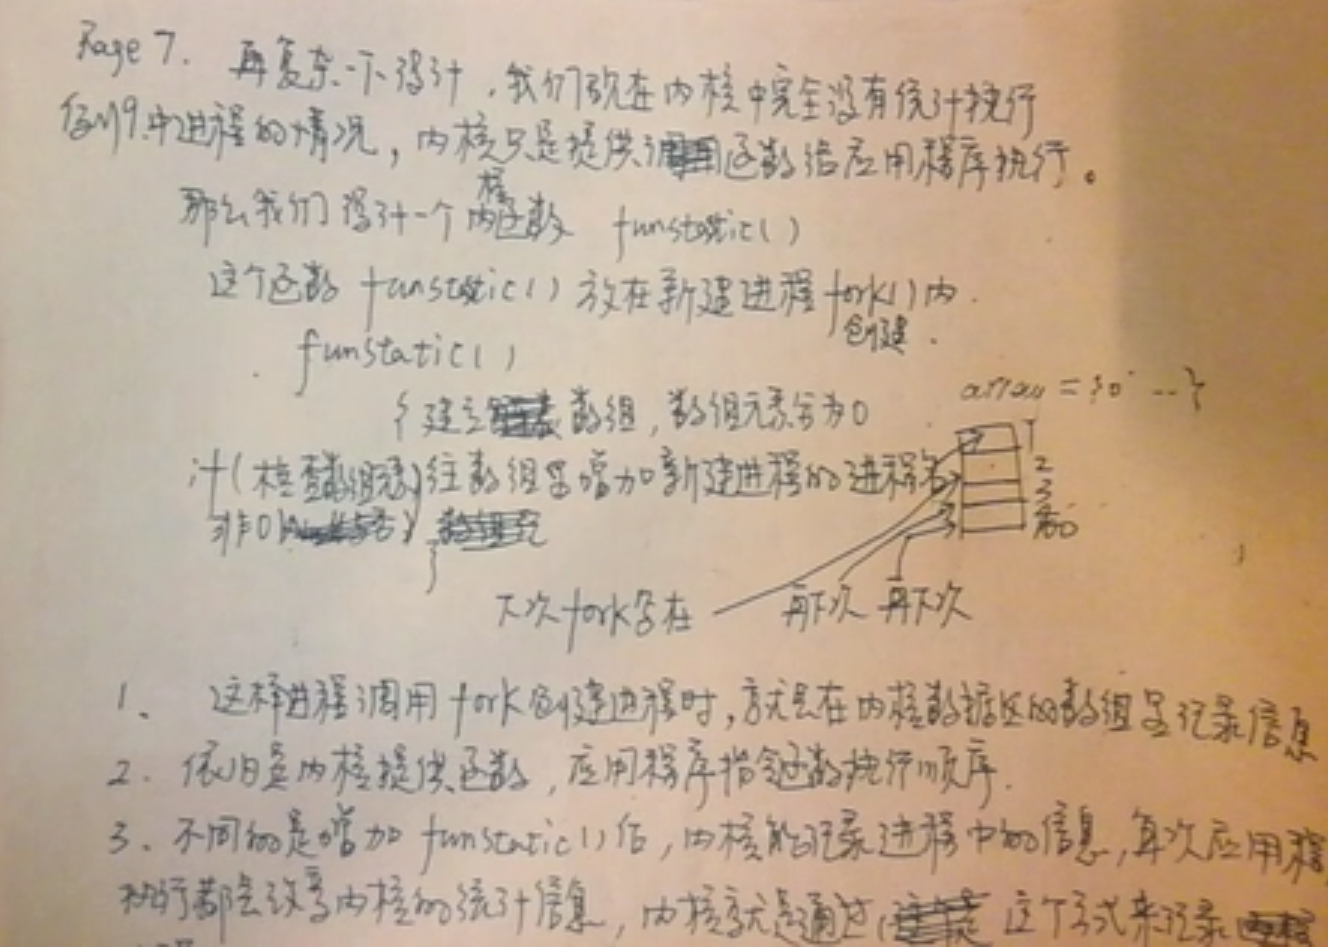 Page 7. 再复杂一下设计,我们现在内核中完全没有统计执行
序列中进程的情况,内核只是提供调用函数给应用程序执行。
那么我们设计一个内核函数 funstatic()
这个函数 funstatic() 放在新建进程 fork() 内.
创建.
funstatic()
array = {0 ...}
{建立数组,数组元素全为0
1
if(检查数组元素)往数组里增加新建进程的进程名
2
3
非0
}
下次fork写在 再下次 再下次
1、 这样进程调用 fork 创建进程时,就会在内核数据区的数组里记录信息
2. 依旧是内核提供函数,应用程序指令函数执行顺序.
3、不同的是增加 funstatic() 后,内核能记录进程中的信息,每次应用程
执行都会改写内核的统计信息,内核就是通过 这个方式来记录